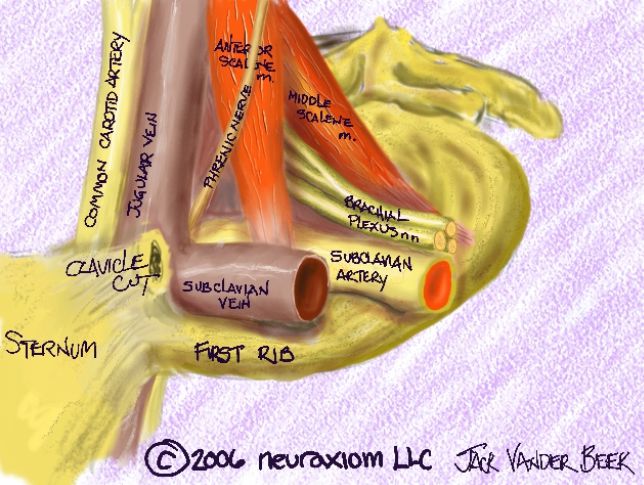 COMMON CAROTID ARTERY
JUGULAR VEIN
PHRENIC NERVE
ANTERIOR
SCALENE
m.
MIDDLE
SCALENE
m.
BRACHIAL
PLEXUS nn
CLAVICLE
CUT
SUBCLAVIAN
VEIN
SUBCLAVIAN
ARTERY
STERNUM
FIRST RIB
©2006 neuraxiom LLC JACK VANDER BEEK